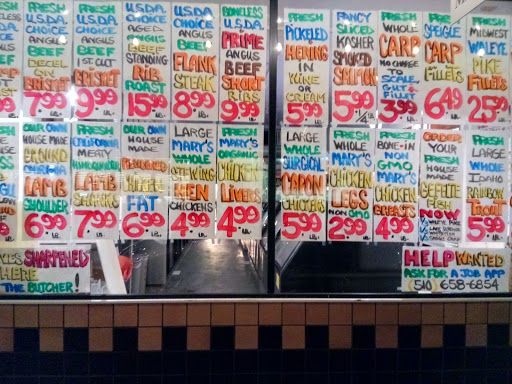 FRESH
U.S.D.A.
CHOICE
ANGUS
BEEF
DECKEL ON
BRISKET
7.99 LB.
FRESH
U.S.D.A.
CHOICE
ANGUS
BEEF
1ST. CUT
BRISKET
9.99 LB.
U.S.D.A.
CHOICE
AGED
ANGUS
BEEF
STANDING
RIB
ROAST
15.99 LB.
U.S.D.A.
CHOICE
ANGUS
BEEF
FLANK
STEAK
8.99 LB.
BONELESS
U.S.D.A.
PRIME
ANGUS
BEEF
SHORT
RIBS
9.99 LB.
FRESH
PICKELED
HERRING
IN
WINE
OR
CREAM
5.99
FANCY
SLICED
KASHER
SMOKED
SALMON
5.99 1/4 LB.
FRESH
WHOLE
CARP
NO CHARGE
TO
SCALE,
GUT &
FILLET
3.99 LB.
FRESH
SPEIGLE
CARP
FILLETS
6.49 LB.
FRESH
MIDWEST
WALEYE
PIKE
FILLETS
25.99
FRESH
OUR OWN
HOUSE MADE
GROUND
LAMB
SHOULDER
6.99 LB.
FRESH
CALIFORNIA
MEATY
LAMB
SHANKS
7.99 LB.
OUR OWN
HOUSE
MADE
RENDERED
CHICKEN
FAT
6.99 LB.
LARGE
MARY'S
WHOLE
STEWING
HEN
CHICKENS
4.99 LB.
FRESH
MARY'S
ORGANIC
CHICKEN
LIVERS
4.99 LB.
LARGE
WHOLE
SURGICAL
CAPON
CHICKENS
5.99 LB.
FRESH
WHOLE
MARY'S
CHICKEN
LEGS
NON GMO
2.99 LB.
FRESH
BONE-IN
NON
GMO
MARY'S
CHICKEN
BREASTS
4.99 LB.
ORDER
YOUR
FRESH
HOUSE
MADE
GEFELTE
FISH
NOW
FRESH
LARGE
WHOLE
IDAHO
RAINBOW
TROUT
5.99 LB.
SHARPENED
HERE
THE BUTCHER!
HELP WANTED
ASK FOR A JOB APP
(510) 658-6854